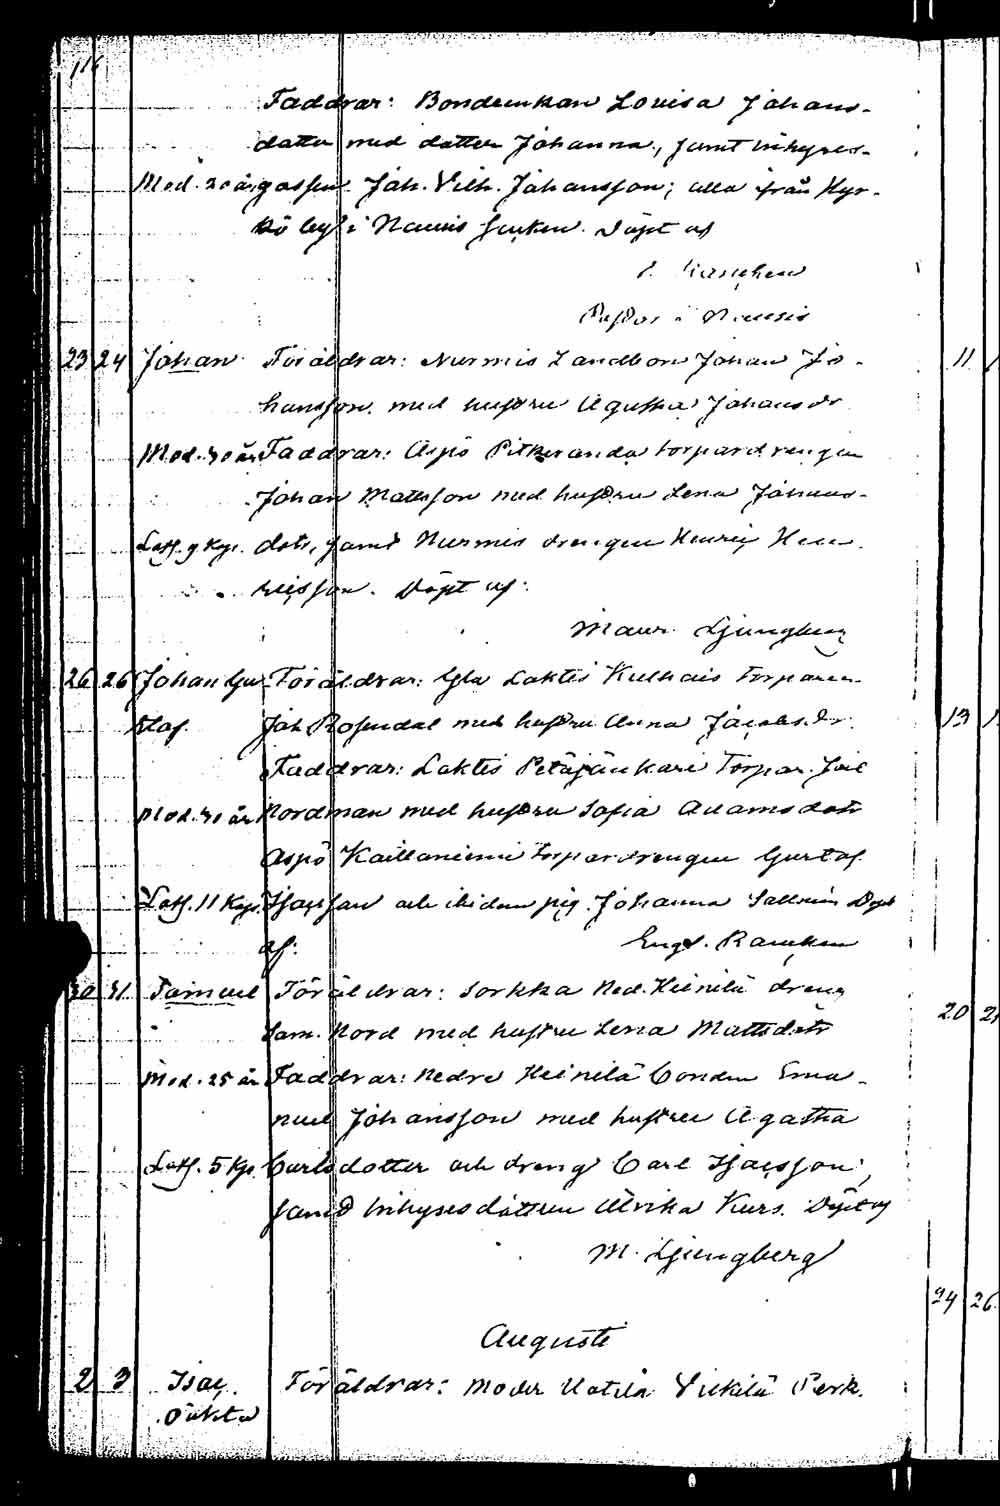 116
Faddrar: Bondeenkan Lovisa Johans-
dotter med dotter Johanna, samt inhyses-
Mod. 20 år gossen Joh. Vilh. Johansson; alla från Kyr-
kö by i Nousis socken. Döpt af
Pastor i Nousis
23 24 Johan Föräldrar: Nurmis Landbon Johan Jo-
hansson med hustru Agatha Johansdr
Mod. 30 år Faddrar: Aspö Pitkäranda torpardrengen
Johan Mattsson med hustru Lena Johans-
Latt. 9 Kap. dotr, samt Nurmis drengen Henric Hen-
ricsson. Döpt af:
Maur. Ljungberg
26 26 Johan Gu- Föräldrar: Gla Laktis Kulhais Torparen
staf. Joh. Rosendal med hustru Anna Jacobsdr.
Faddrar: Laktis Petäjäukari Torpar. Joel
Mod. 30 år Nordman med hustru Sofia Adamsdotr
Aspö Kaillaniemi torpardrengen Gustaf
Latt. 11 Kap. Isacsson och ibidem pig. Johanna Sallmén Döpt
af: Engl. Rancken
30 31 Samuel Föräldrar: Sorkka Ned. Heinilä dreng
Sam. Nord med hustru Lena Mattsdotr
Mod. 25 år Faddrar: Nedre Heinilä bonden Ema-
nuel Johansson med hustru Agatha
Latt. 5 Kp. Carlsdotter och dreng Carl Isacsson,
samt inhysesdottren Ulrika Kurs. Döpt af
M. Ljungberg
Augusti
2 3 Isac. Föräldrar: Moder Uotila Vickilä Perk.
oäkta
11
13
20 2
24 26